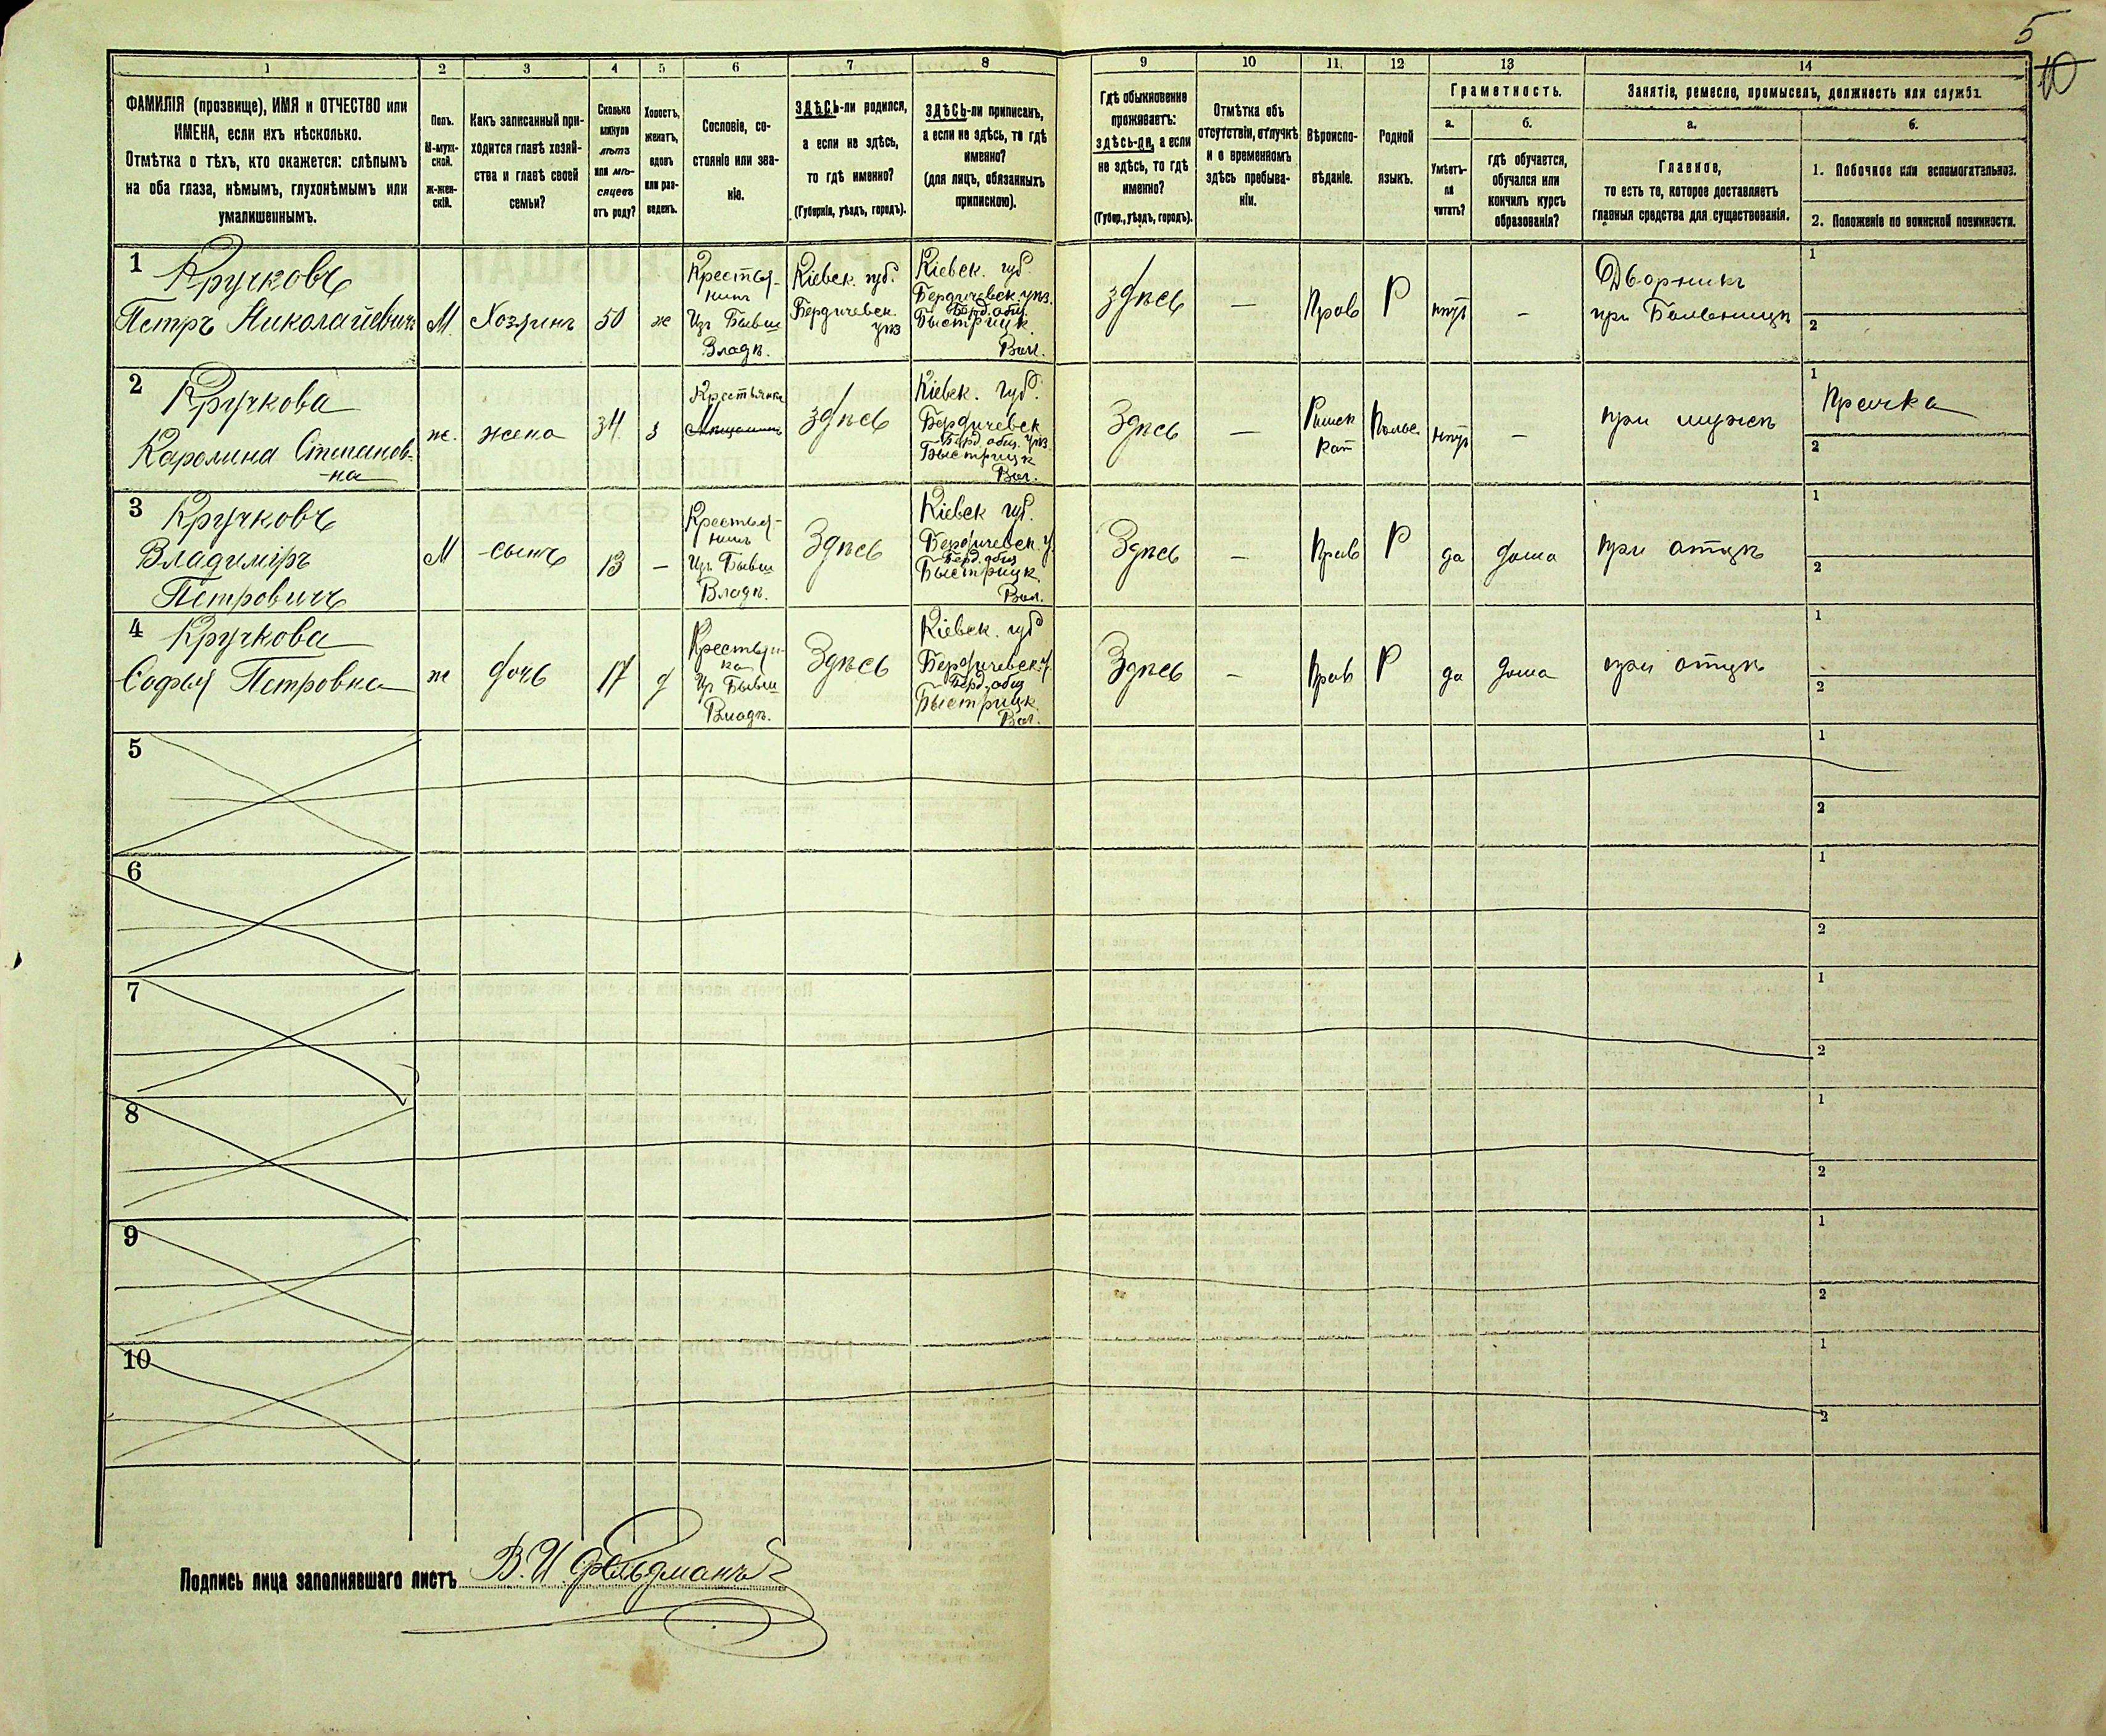 5
10
1
2
3
4
5
6
7
8
9
10
11.
12
13
14
ФАМИЛІЯ (прозвище), ИМЯ и ОТЧЕСТВО или
ИМЕНА, если ихъ нѣсколько.
Отмѣтка о тѣхъ, кто окажется: слѣпымъ
на оба глаза, нѣмымъ, глухонѣмымъ или
умалишеннымъ.
Полъ.
М-муж-
ской.
Ж-жен-
скій.
Какъ записанный при-
ходится главѣ хозяй-
ства и главѣ своей
семьи?
Сколько
минуло
лѣтъ
или мѣ-
сяцевъ
отъ роду?
Холостъ,
женатъ,
вдовъ
или раз-
веденъ.
Сословіе, со-
стояніе или зва-
ніе.
ЗДѢСЬ-ли родился,
а если не здѣсь,
то гдѣ именно?
(Губернія, уѣздъ, городъ).
ЗДѢСЬ-ли приписанъ,
а если не здѣсь, то гдѣ
именно?
(для лицъ, обязанныхъ
припискою).
Гдѣ обыкновенно
проживаетъ:
здѣсь-ли, а если
не здѣсь, то гдѣ
именно?
(Губер., уѣздъ, городъ).
Отмѣтка объ
отсутствіи, отлучкѣ
и о временномъ
здѣсь пребыва-
ніи.
Вѣроиспо-
вѣданіе.
Родной
языкъ.
Грамотность.
а.
б.
Умѣетъ-
ли
читать?
гдѣ обучается,
обучался или
кончилъ курсъ
образованія?
Занятіе, ремесло, промыселъ, должность или служба.
а.
б.
Главное,
то есть то, которое доставляетъ
главныя средства для существованія.
1. Побочное или вспомогательное.
2. Положеніе по воинской повинности.
1
Кручковъ
Петръ Николаевичъ
М.
Хозяинъ
50
ж
Крестья-
нинъ
Изъ Бывш
Владѣ.
Кіевск. губ.
Бердичевск.
уѣз
Кіевск. губ.
Бердичевск. уѣз.
Берд. общ.
Быстрицк.
Вол.
здѣсь
—
Прав
Р
нѣтъ
—
Дворникъ
при Больницѣ
1
2
2
Кручкова
Каролина Степанов-
-на
ж.
жена
34
з
Крестьянка
здѣсь
Кіевск. губ.
Бердичевск
Берд. общ. уѣз.
Быстрицк
Вол.
Здѣсь
—
Римск
Кат
Польс
нѣтъ
—
при мужѣ
1
Прачка
2
3
Кручковъ
Владиміръ
Петровичъ
М
сынъ
13
—
Крестья-
нинъ
Изъ Бывш
Владѣ.
Здѣсь
Кіевск губ.
Бердичевск. у.
Берд. общ
Быстрицк
Вол.
Здѣсь
—
Прав
Р
да
дома
при отцѣ
1
2
4
Кручкова
Софья Петровна
ж
дочь
17
д
Крестьян-
ка
Из Бывш
Владѣ.
Здѣсь
Кіевск. губ
Бердичевск. у.
Берд. общ
Быстрицк
Вол.
Здѣсь
—
Прав
Р
да
дома
при отцѣ
1
2
5
1
2
6
1
2
7
1
2
8
1
2
9
1
2
10
1
2
Подпись лица заполнявшаго листъ В. И Фельдманъ